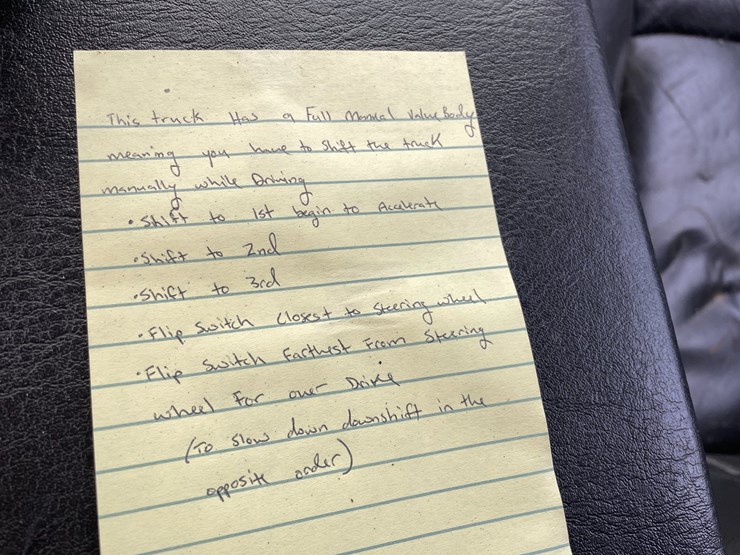 This truck Has a Full Manual Valve Body
meaning you have to Shift the truck
manually while Driving
• Shift to 1st begin to Accelerate
• Shift to 2nd
• Shift to 3rd
• Flip Switch Closest to Steering wheel
• Flip Switch Farthest From Steering
wheel For over Drive
(To Slow down downshift in the
opposite order)